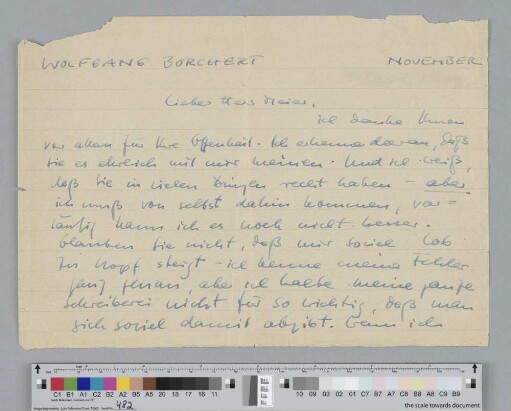 WOLFGANG BORCHERT NOVEMBER
Lieber Herr Meier,
ich danke Ihnen
vor allem für Ihre Offenheit. Ich erkenne daran, daß
Sie es ehrlich mit mir meinen. Und ich weiß,
daß Sie in vielen Dingen recht haben - aber
ich muß von selbst dahin kommen, vor=
läufig kann ich es noch nicht besser.
Glauben Sie nicht, daß mir soviel Lob
zu Kopf steigt - ich kenne meine Fehler
ganz genau, aber ich halte meine ganze
Schreiberei nicht für so wichtig, daß man
sich soviel damit abgibt. Wenn ich
C1 B1 A1 C2 B2 A2 B5 A5 20 18 17 16 11
10 09 03 02 01 C7 B7 A7 C8 B8 A8 C9 B9
482
the scale towards document